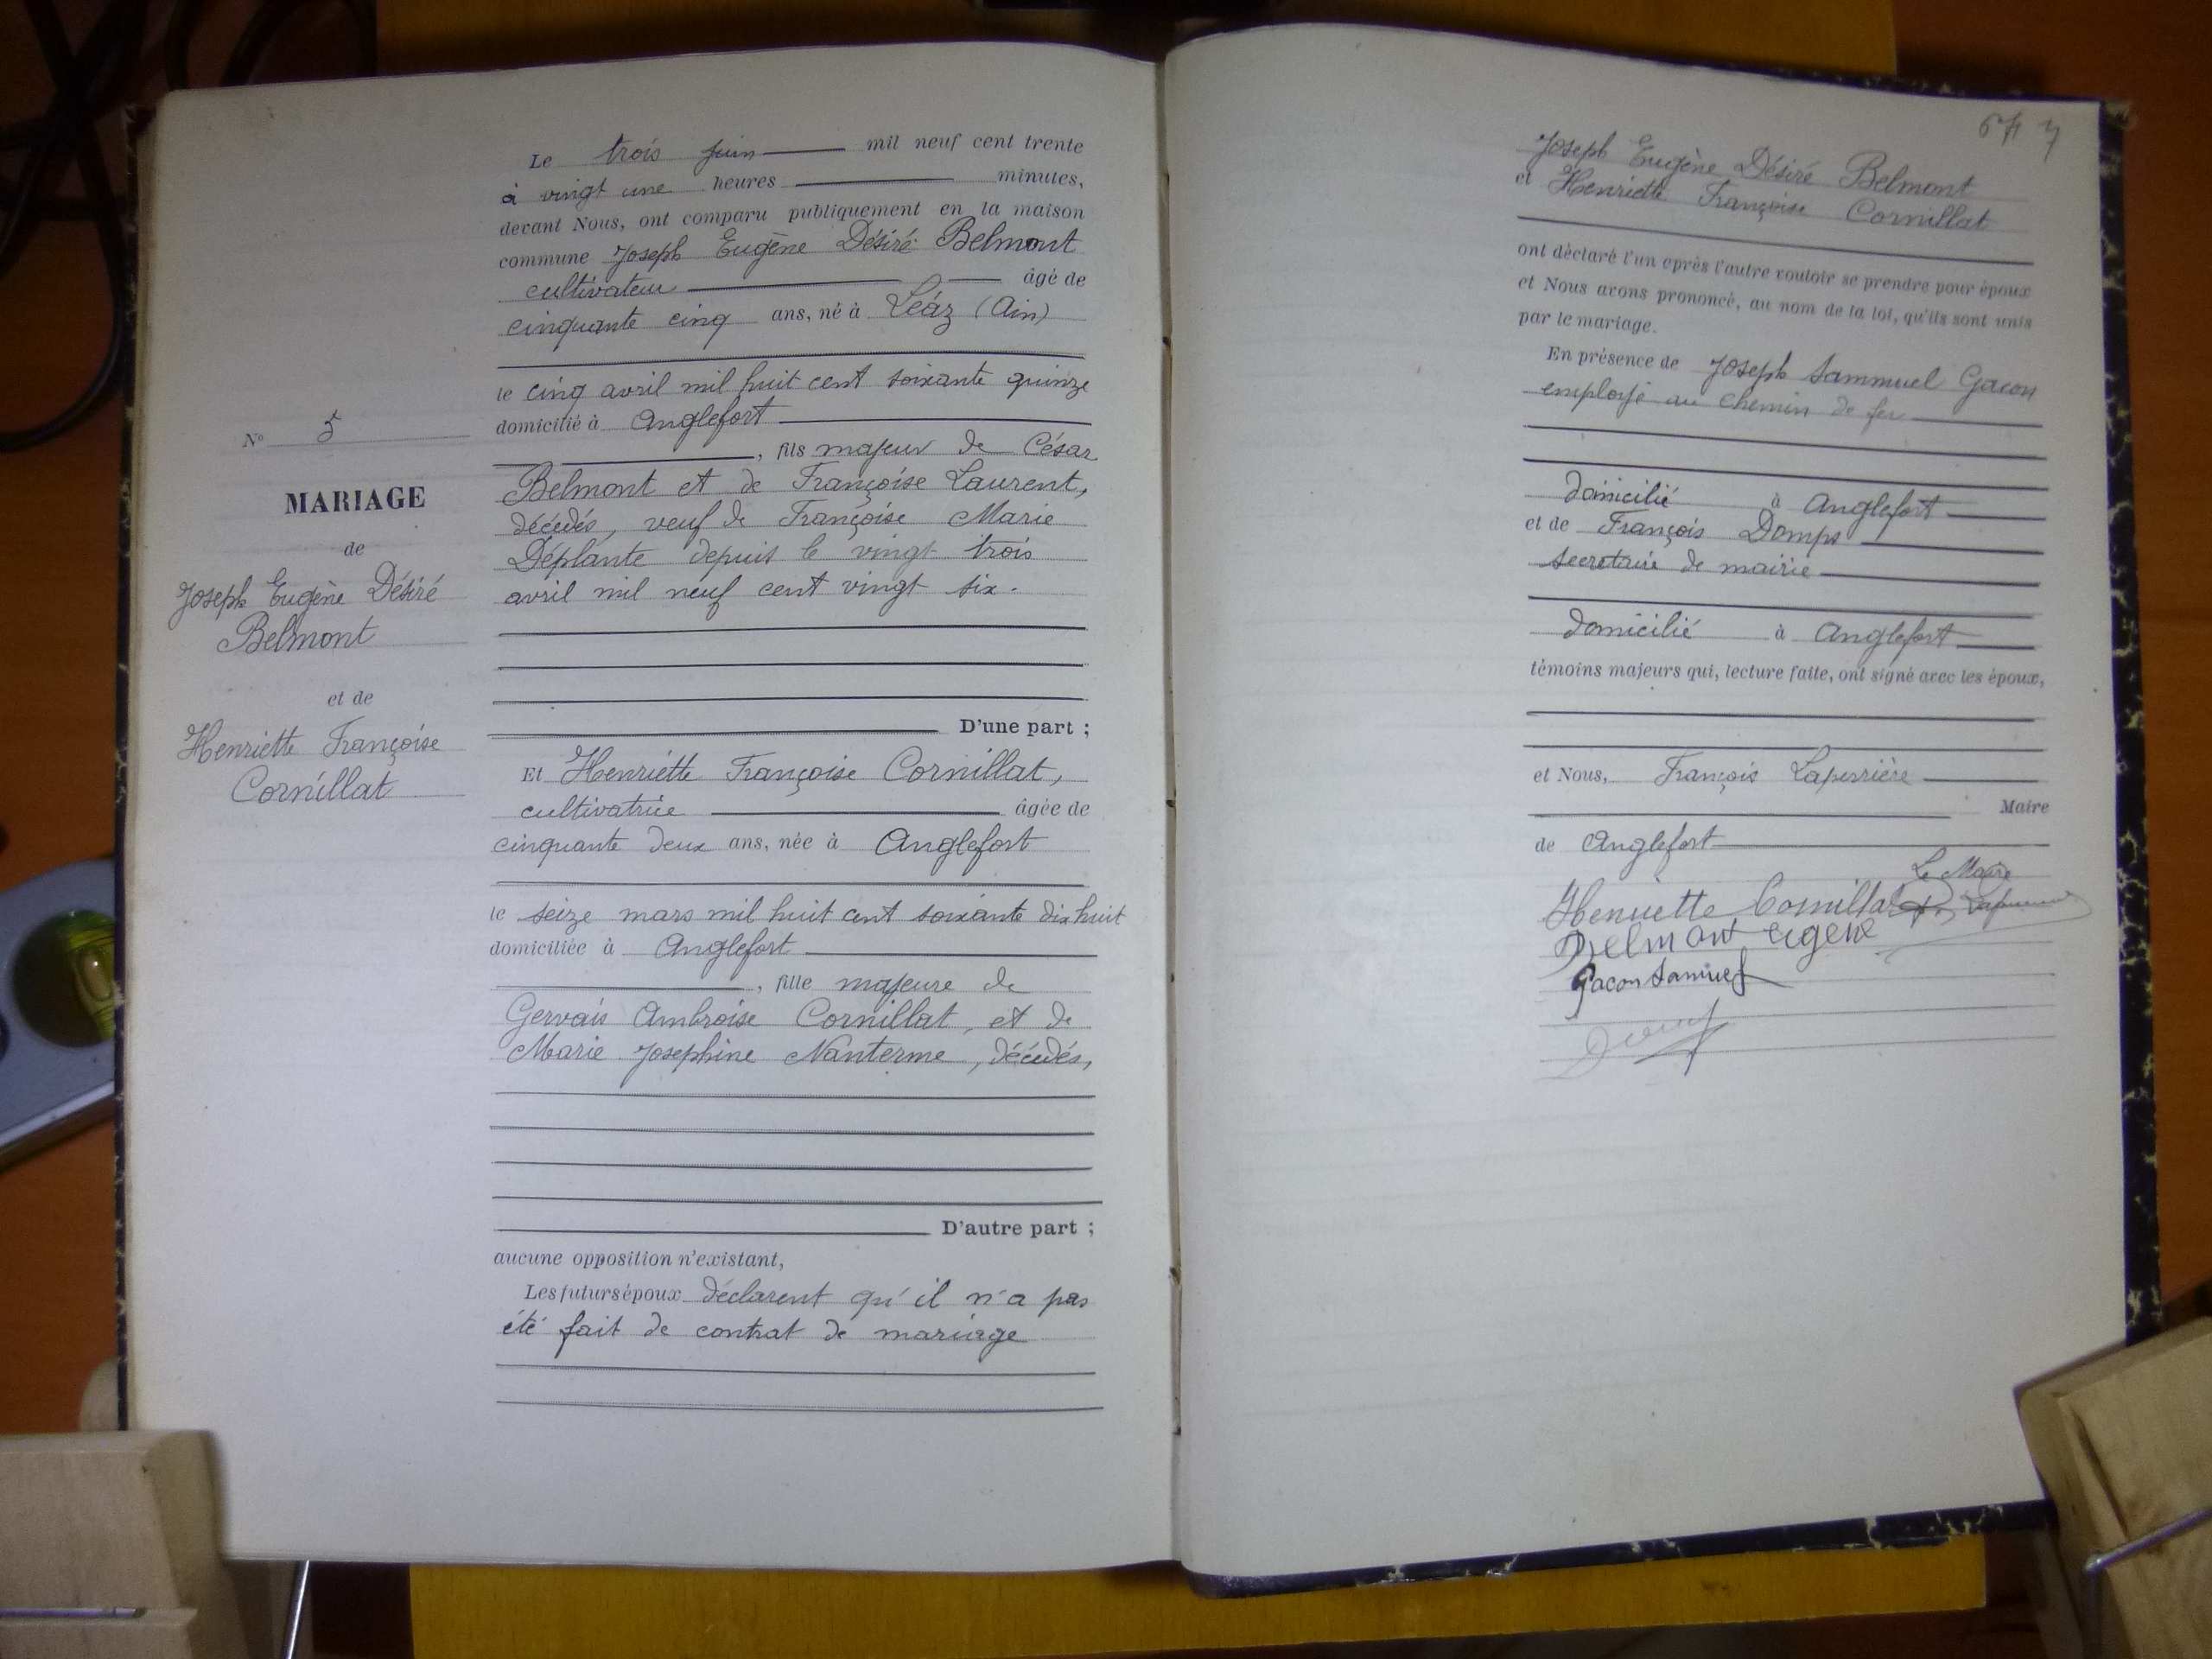 N° 5
MARIAGE
de
Joseph Eugène Désiré
Belmont
et de
Henriette Françoise
Cornillat
Le trois juin mil neuf cent trente
à vingt une heures minutes,
devant Nous, ont comparu publiquement en la maison
commune Joseph Eugène Désiré Belmont
cultivateur âgé de
cinquante cinq ans, né à Léaz (Ain)
le cinq avril mil huit cent soixante quinze
domicilié à Anglefort
, fils majeur de César
Belmont et de Françoise Laurent,
décédés, veuf de Françoise Marie
Déplante depuis le vingt trois
avril mil neuf cent vingt six.
D'une part ;
Et Henriette Françoise Cornillat,
cultivatrice âgée de
cinquante deux ans, née à Anglefort
le seize mars mil huit cent soixante dix huit
domiciliée à Anglefort
, fille majeure de
Gervais Ambroise Cornillat, et de
Marie Josephine Nanterme, décédés,
D'autre part ;
aucune opposition n'existant,
Les futurs époux déclarent qu'il n'a pas
été fait de contrat de mariage
7
Joseph Eugène Désiré Belmont
et Henriette Françoise Cornillat
ont déclaré l'un après l'autre vouloir se prendre pour époux
et Nous avons prononcé, au nom de la loi, qu'ils sont unis
par le mariage.
En présence de Joseph Sammuel Gacon
employé au chemin de fer
domicilié à Anglefort
et de François Domps
secretaire de mairie
domicilié à Anglefort
témoins majeurs qui, lecture faite, ont signé avec les époux,
et Nous, François Laperrière
Maire
de Anglefort
Le Maire
Henriette Cornillat
Belmont eugene
Gacon Samuel